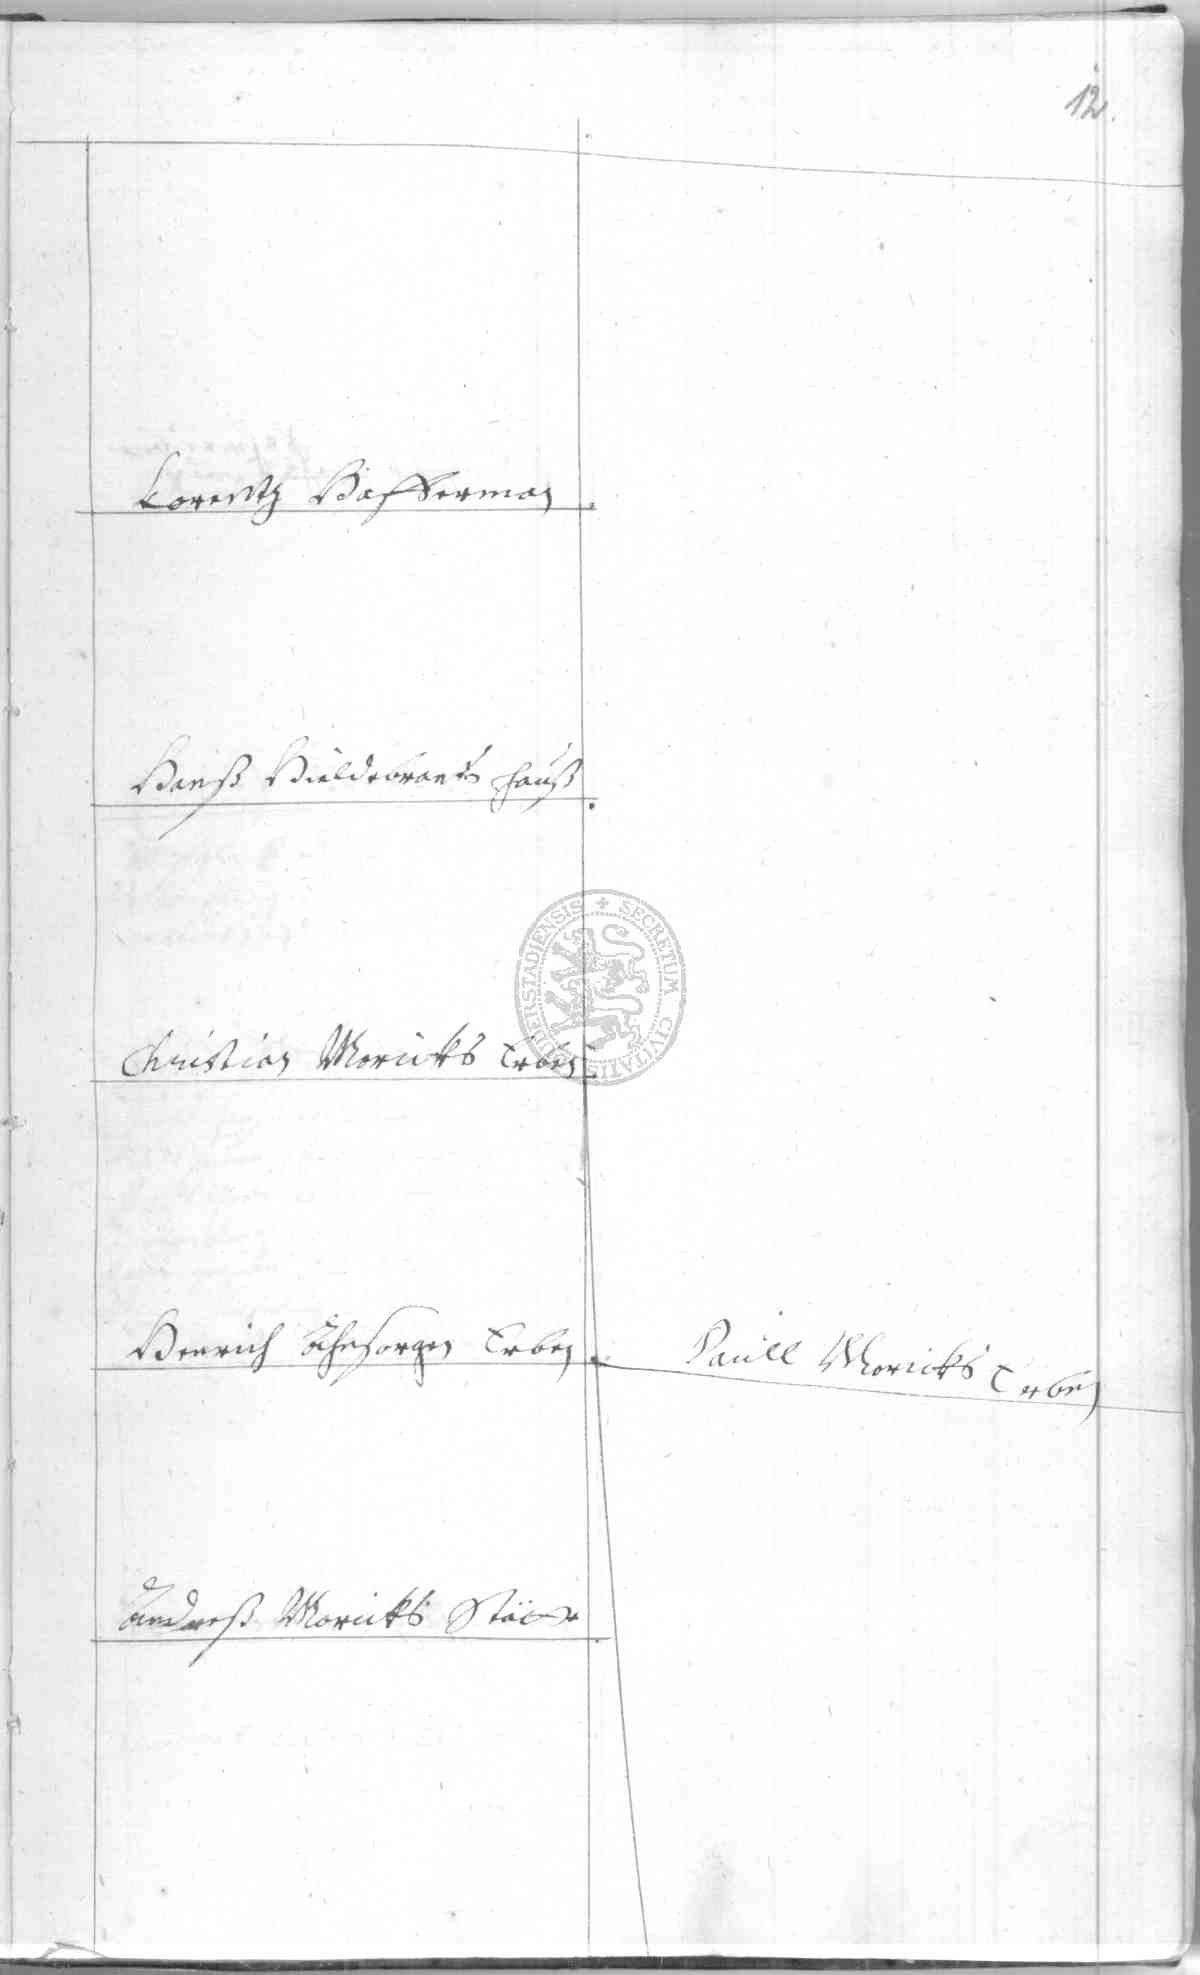 12.
Lorentz Wasserman
Hanß Hildebrants Hauß
Christian Moricks Erben
Henrich Ohnsorgen Erben
Paull Moricks Erben
Andreß Moricks
SECRETUM CIVITATIS DUDERSTADIENSIS